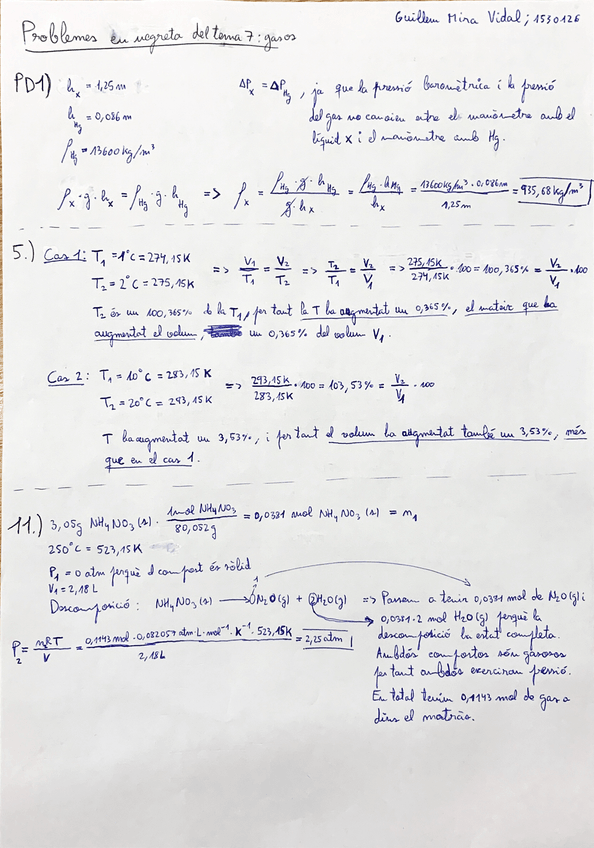 Guillem Mira Vidal; 1530126
Problemes en negreta del tema 7: gasos
PD1) h_x = 1,25 m
ΔP_x = ΔP_Hg, ja que la pressió baromètrica i la pressió
h_Hg = 0,086 m
del gas no canvien entre el manòmetre amb el
líquid x i el manòmetre amb Hg.
ρ_Hg = 13600 kg/m³
ρ_x · g · h_x = ρ_Hg · g · h_Hg => ρ_x = ρ_Hg · g · h_Hg / g · h_x = ρ_Hg · h_Hg / h_x = 13600 kg/m³ · 0,086 m / 1,25 m = 935,68 kg/m³
5.) Cas 1: T₁ = 1°C = 274,15 K
T₂ = 2°C = 275,15 K
=> V₁/T₁ = V₂/T₂ => T₂/T₁ = V₂/V₁ => 275,15K/274,15K · 100 = 100,365% = V₂/V₁ · 100
T₂ és un 100,365% de la T₁, per tant la T ha augmentat un 0,365%, el mateix que ha
augmentat el volum, un 0,365% del volum V₁.
Cas 2: T₁ = 10°C = 283,15 K
T₂ = 20°C = 293,15 K
=> 293,15K/283,15K · 100 = 103,53% = V₂/V₁ · 100
T ha augmentat un 3,53%, i per tant el volum ha augmentat també un 3,53%, més
que en el cas 1.
11.) 3,05g NH₄NO₃(s) · 1mol NH₄NO₃ / 80,052g = 0,0381 mol NH₄NO₃(s) = n₁
250°C = 523,15K
P₁ = 0 atm perquè el compost és sòlid
V₁ = 2,18 L
Descomposició: NH₄NO₃(s) → N₂O(g) + 2H₂O(g)
1
=> Passem a tenir 0,0381 mol de N₂O(g) i
0,0381 · 2 mol H₂O(g) perquè la
descomposició ha estat completa.
Ambdós compostos són gasosos
per tant ambdós exerciran pressió.
En total tenim 0,1143 mol de gas a
dins el matràs.
P₂ = nRT/V = 0,1143 mol · 0,082057 atm·L·mol⁻¹·K⁻¹ · 523,15K / 2,18L = 2,25 atm